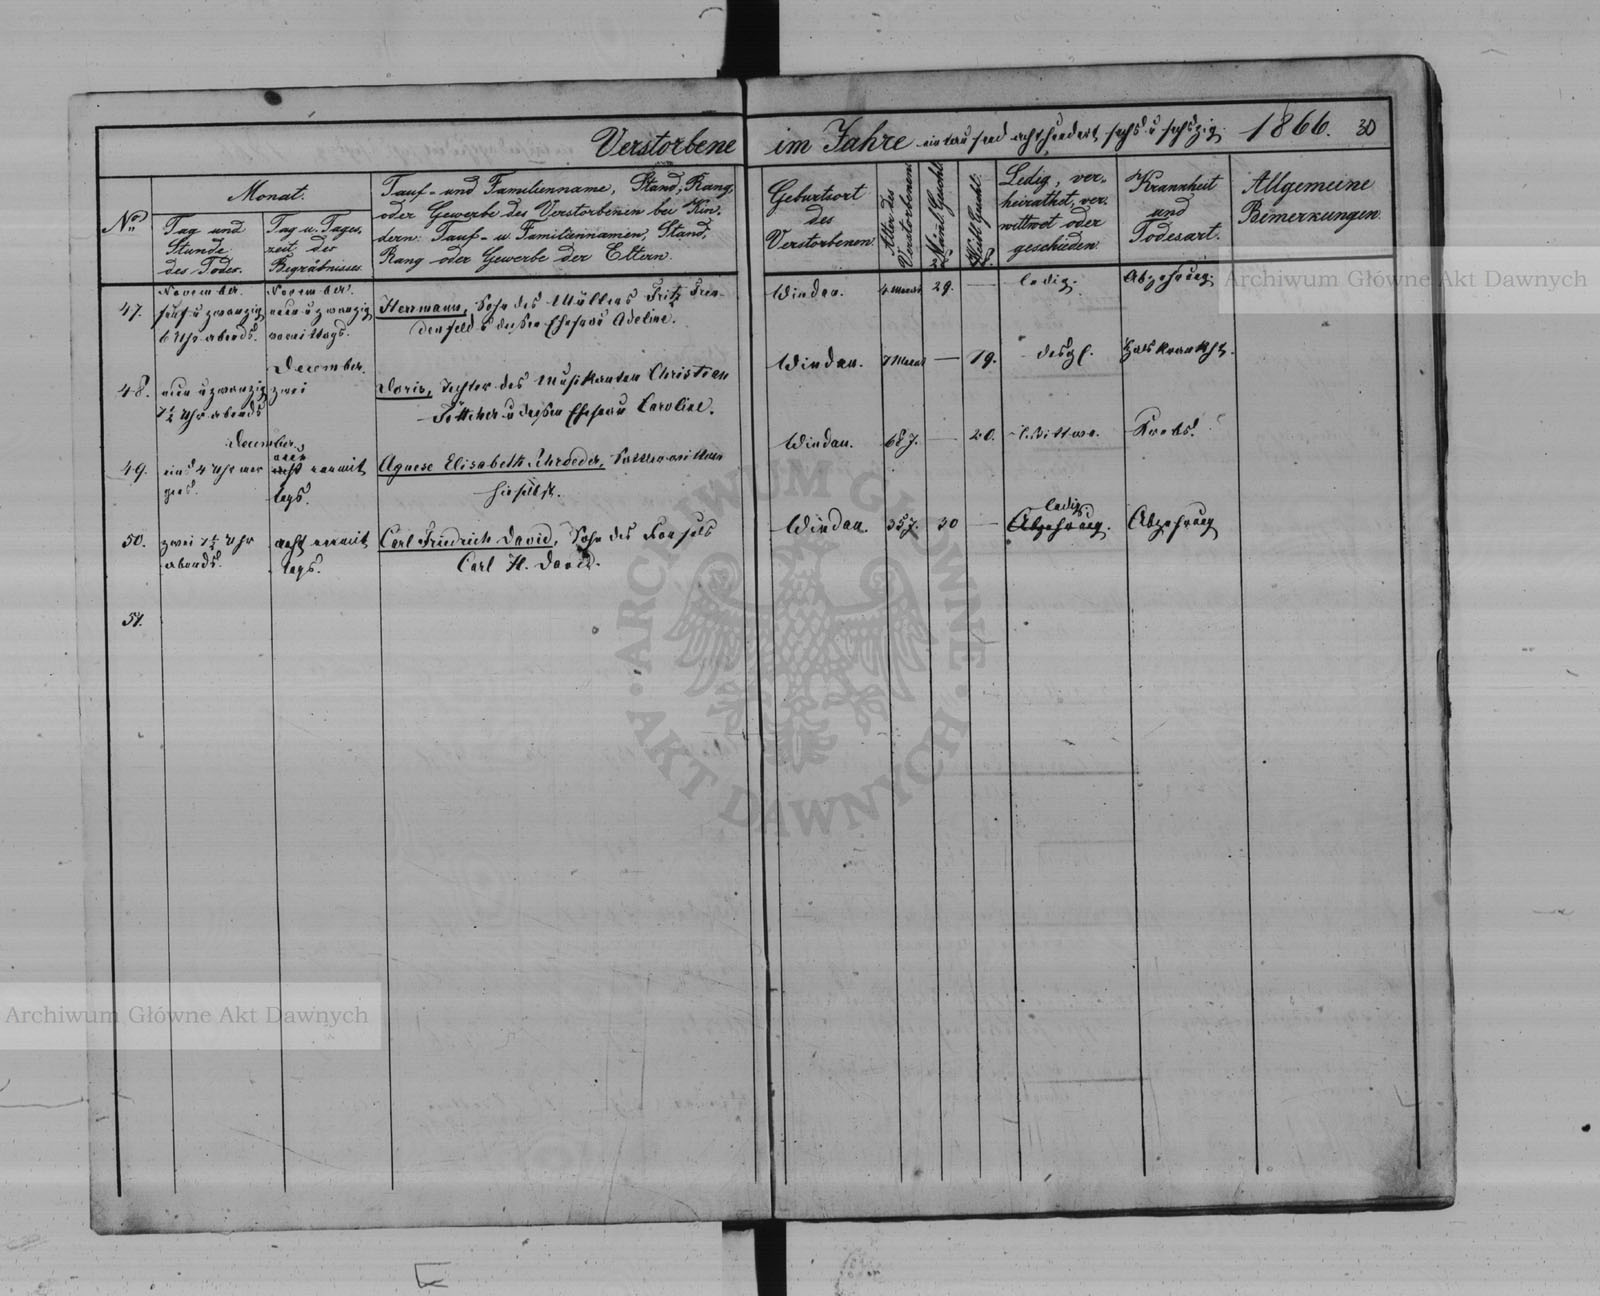 Verstorbene im Jahre eintausend achthundert sechs u sechszig. 1866. 30
No
Monat.
Tag und
Stunde
des Todes.
Tag u. Tages-
zeit der
Begräbnisses
Tauf- und Familienname, Stand, Rang,
oder Gewerbe des Verstorbenen bei Kin-
dern: Tauf- u. Familiennamen, Stand,
Rang oder Gewerbe der Eltern.
Geburtsort
des
Verstorbenen.
Alter des
Verstorbenen
Mänl. Geschl.
Weibl. Geschl.
Ledig, ver-
heirathet, ver-
wittwet oder
geschieden.
Krankheit
und
Todesart.
Allgemeine
Bemerkungen.
47.
November.
fünf u zwanzig
6 Uhr abends.
November.
neun u zwanzig
vormittags.
Hermann, Sohn des Müllers Fritz Freu-
denfeld u dessen Ehefrau Adeline.
Windau. 4 Monat 29. — ledig. Abzehrung.
48.
neun u zwanzig
7½ Uhr abends
December.
zwei
Doris, Tochter des Musikanten Christian
Böttcher u dessen Ehefrau Caroline.
Windau. 7 Monat — 19. desgl. Halskrankht.
49.
December.
eins 4 Uhr mor
gens.
acht vormit
tags.
Agnese Elisabeth Schroeder,
hieselbst.
Windau. 68 J. — 20. Wittwe. Krebs.
50.
zwei 7½ Uhr
abends.
acht vormit
tags.
Carl Friedrich David, Sohn des Konsuls
Carl H. David.
Windau. 35 J. 30 —
ledig.
Abzehrung. Abzehrung
51.
Archiwum Główne Akt Dawnych
Archiwum Główne Akt Dawnych
ARCHIWUM GŁÓWNE AKT DAWNYCH